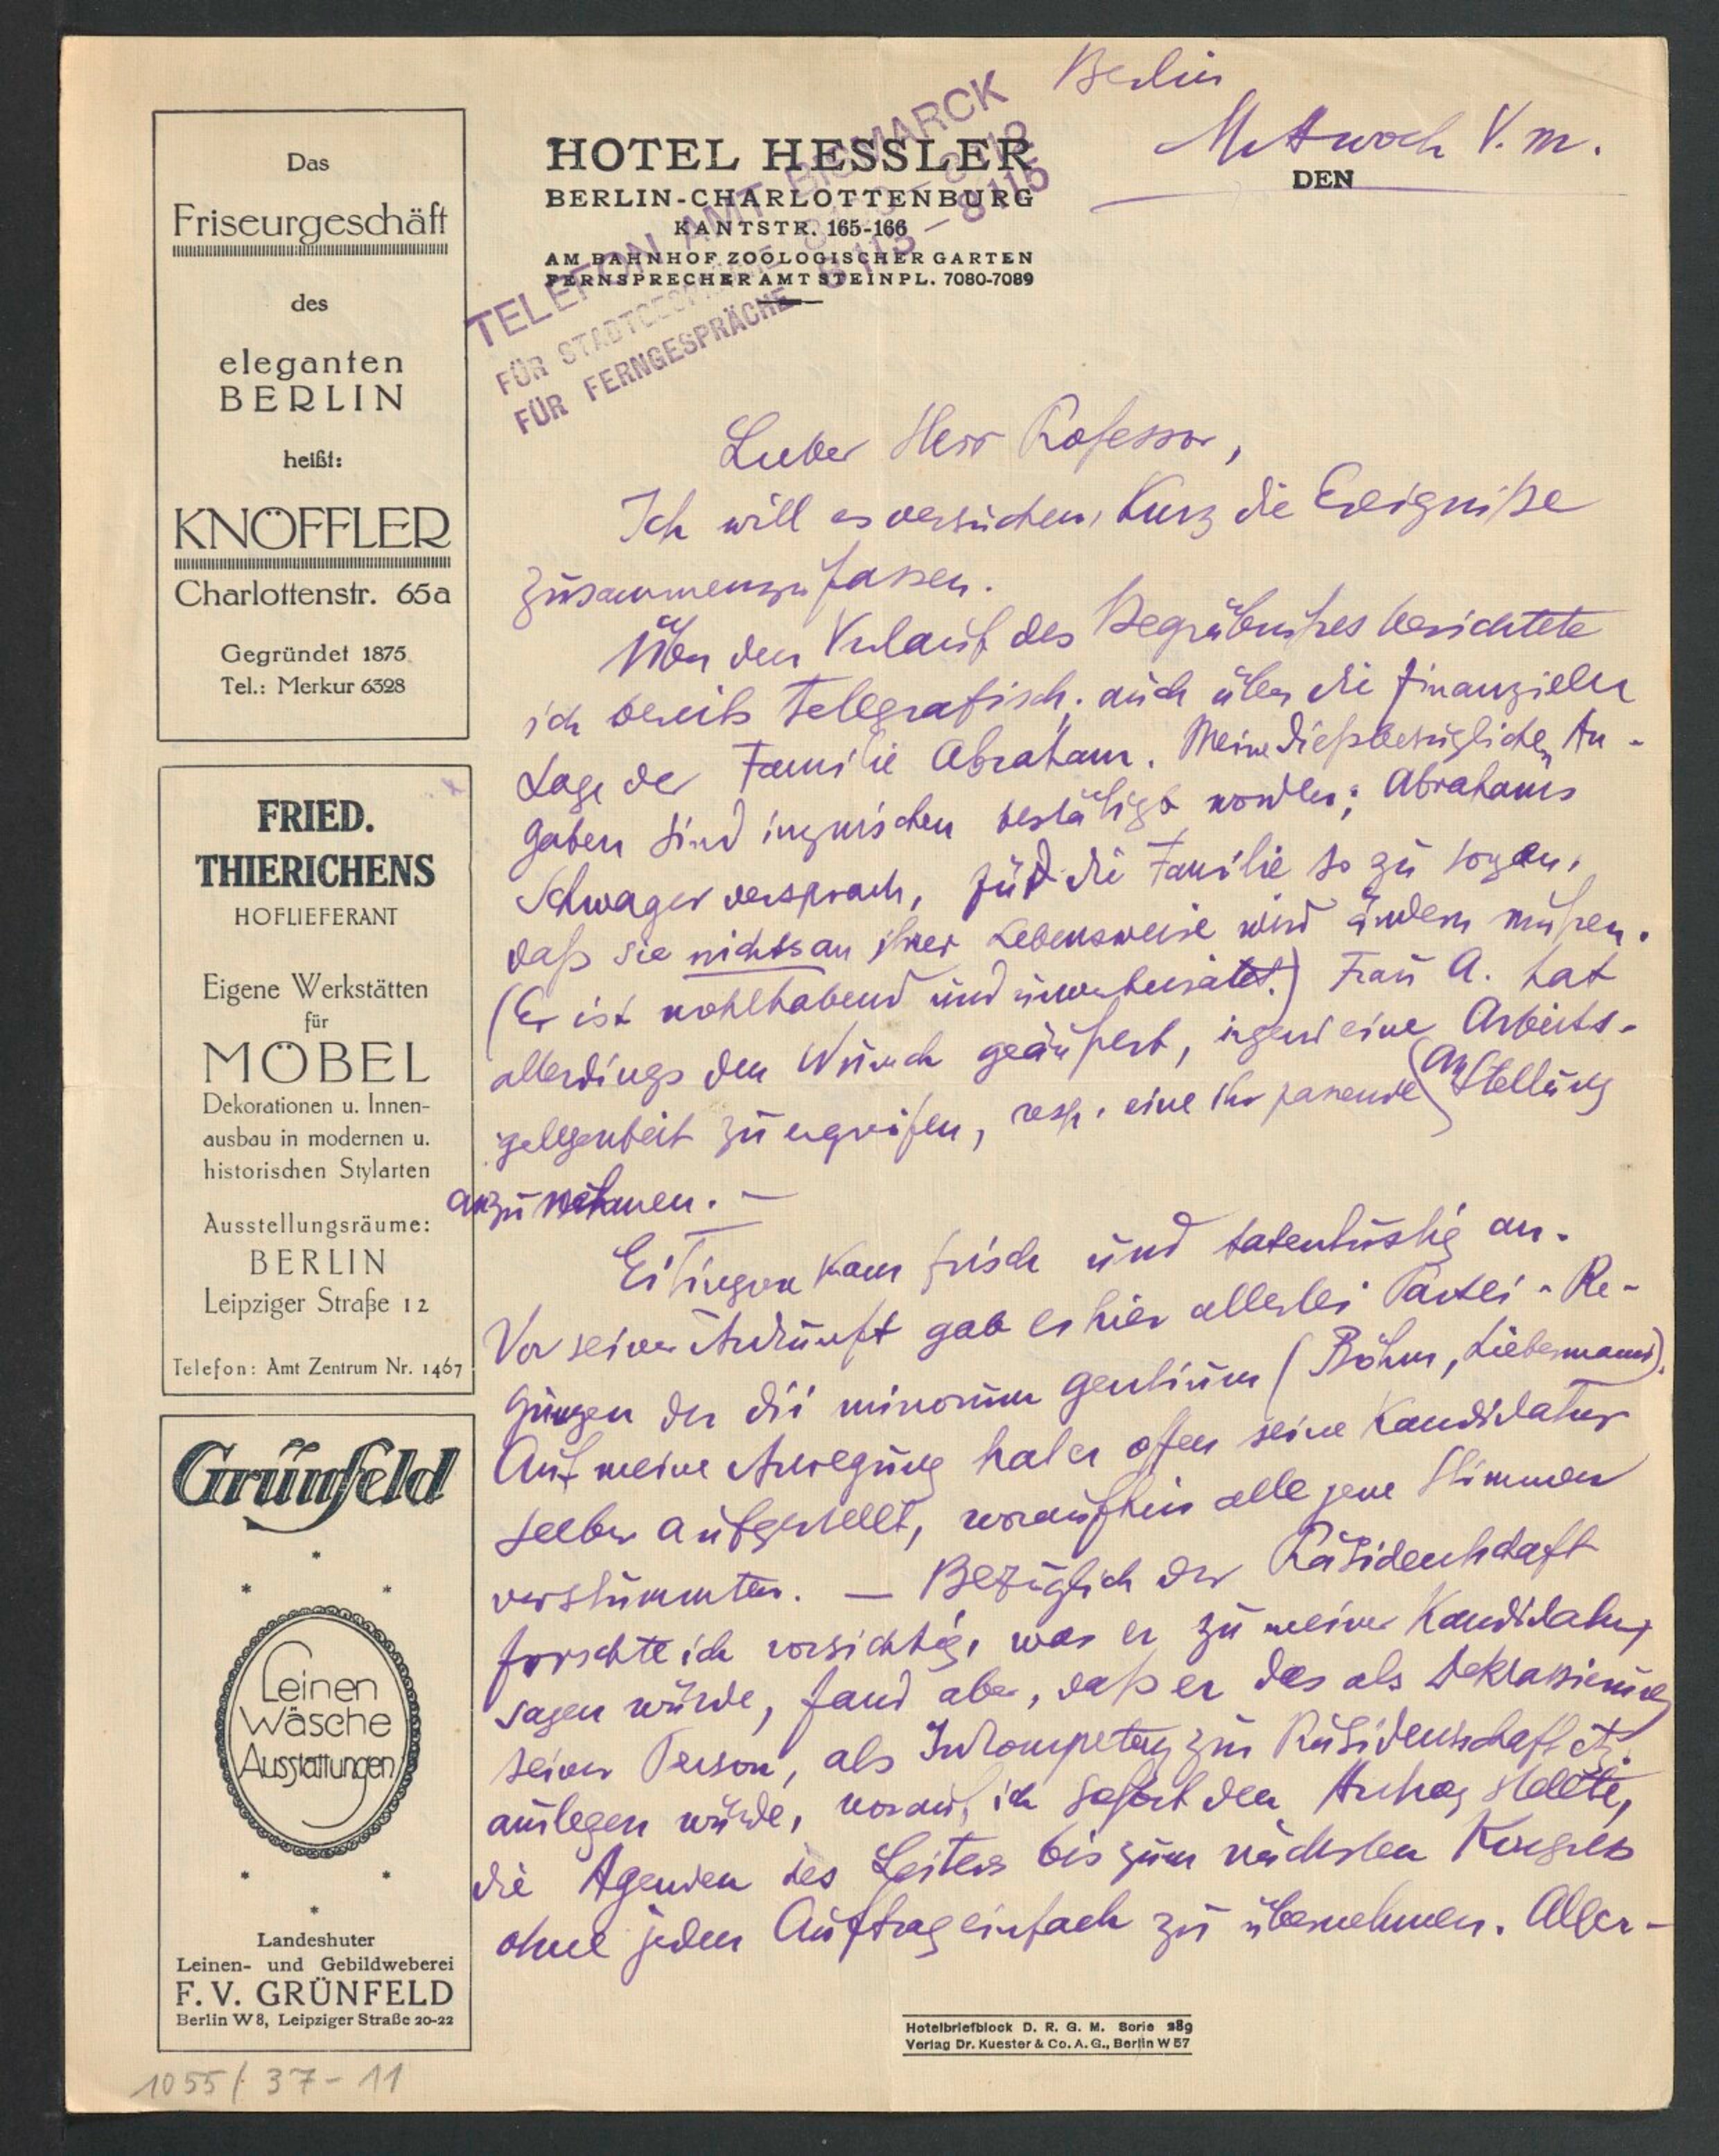 Das
Friseurgeschäft
des
eleganten
BERLIN
heißt:
KNÖFFLER
Charlottenstr. 65a
Gegründet 1875
Tel.: Merkur 6328
FRIED.
THIERICHENS
HOFLIEFERANT
Eigene Werkstätten
für
MÖBEL
Dekorationen u. Innen-
ausbau in modernen u.
historischen Stylarten
Ausstellungsräume:
BERLIN
Leipziger Straße 12
Telefon: Amt Zentrum Nr. 1467
Grünfeld
Leinen
Wäsche
Ausstattungen
Landeshuter
Leinen- und Gebildweberei
F. V. GRÜNFELD
Berlin W 8, Leipziger Straße 20-22
1055/37-11
HOTEL HESSLER
BERLIN-CHARLOTTENBURG
KANTSTR. 165-166
AM BAHNHOF ZOOLOGISCHER GARTEN
FERNSPRECHER AMT STEINPL. 7080-7089
TELEFON AMT BISMARCK
FÜR STADTGESPRÄCHE
FÜR FERNGESPRÄCHE 8113-8115
Berlin
Mittwoch V. m.
DEN
Lieber Herr Professor,
Ich will es versuchen, kurz die Ereigniße
zusammenzufassen.
Über den Verlauf des Begräbnißes berichtete
ich bereits telegrafisch; auch über die finanzielle
Lage der Familie Abraham. Meine dießbezüglichen An-
gaben sind inzwischen bestätigt worden; Abrahams
Schwager versprach, für die Familie so zu sorgen,
daß sie nichts an ihrer Lebensweise wird ändern müßen.
(Er ist wohlhabend und unverheiratet.) Frau A. hat
allerdings den Wunsch geäußert, irgend eine Arbeits-
gelegenheit zu ergreifen, resp. eine ihr passende Anstellung
anzunehmen. —
Eitingon kam frisch und tatenlustig an.
Vor seiner Ankunft gab es hier allerlei Partei-Re-
gungen der dii minorum gentium (Böhm, Liebermann).
Auf meine Anregung hat er offen seine Kandidatur
selber aufgestellt, woraufhin alle jene Stimmen
verstummten. — Bezüglich der Präsidentschaft
forschte ich vorsichtig, was er zu meiner Kandidatur
sagen würde, fand aber, daß er das als Deklassierung
seiner Person, als Inkompetenz zur Präsidentschaft etz.
auslegen würde, worauf ich sofort den Antrag stellte,
die Agenden des Leiters bis zum nächsten Kongress
ohne jeden Auftrag einfach zu übernehmen. Aller-
Hotelbriefblock D. R. G. M. Serie 289
Verlag Dr. Kuester & Co. A. G., Berlin W 57